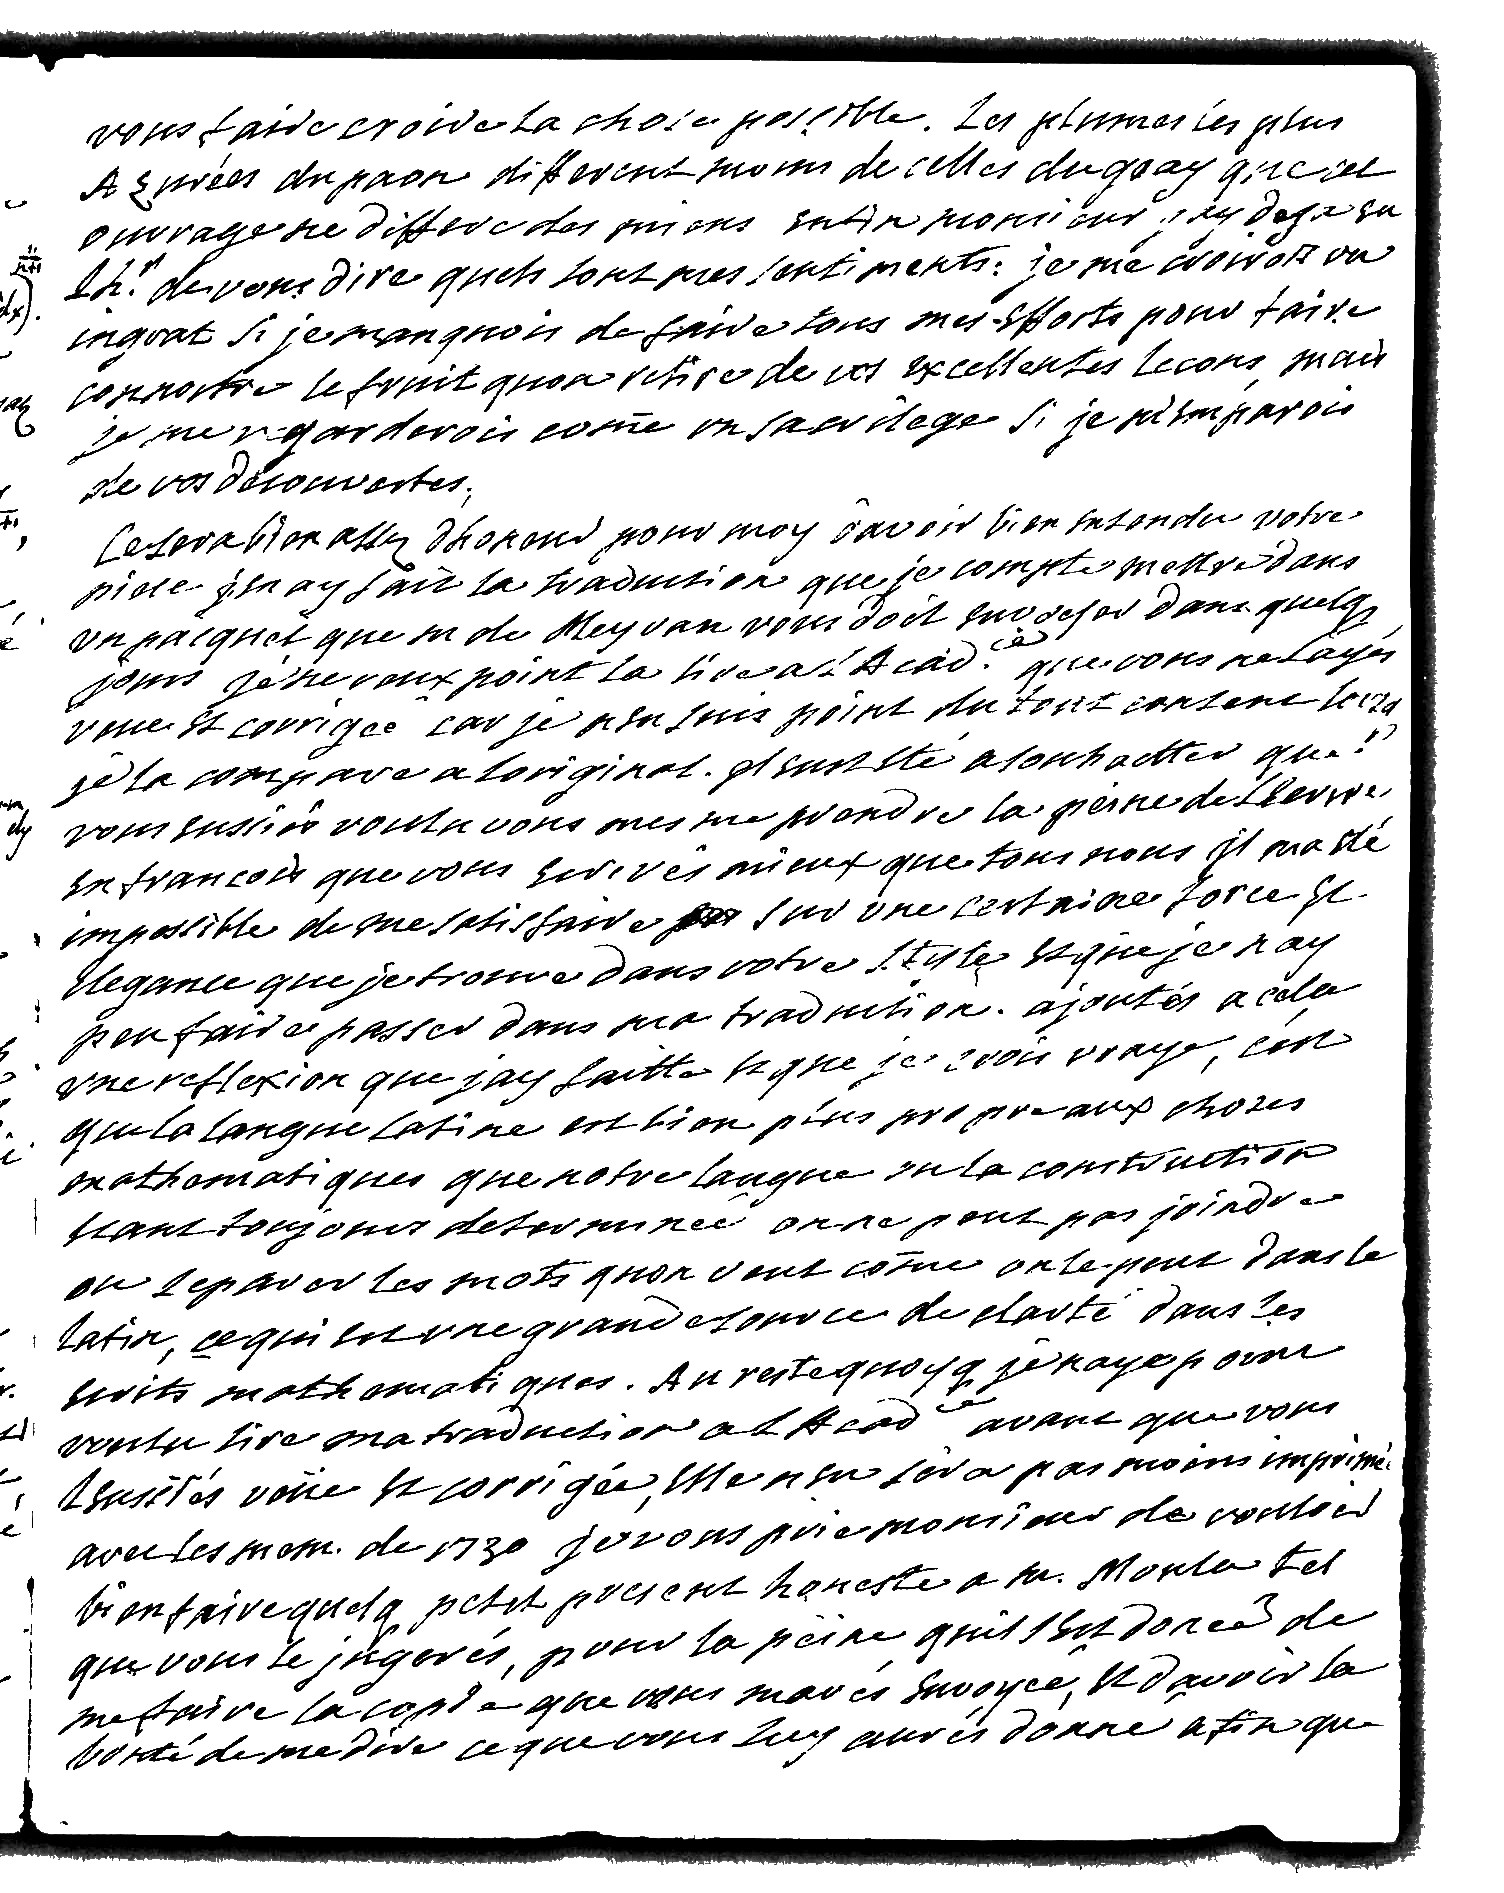 vous faire croire la chose possible. Les plumes les plus
Azurées du paon different moins de celles du geay que cet
ouvrage ne differe des miens enfin monsieur j'ay deja eu
Lh.r de vous dire quels sont mes sentiments: je me croirois un
ingrat si je manquois de faire tous mes Efforts pour faire
connoitre le fruit quon retire de vos Excellentes lecons, mais
je me regarderois come un sacrilege si je m'Emparois
de vos decouvertes.
Ce sera bien assez dhoneur pour moy d'avoir bien entendu votre
piece j'en ay fait la traduction que je compte mettre dans
un pacquet que m de Meyran vous doit envoyer dans quelq
jours je ne veux point la lire a l'Acad.ie que vous ne layés
veue et corrigée car je n'en suis point du tout content lorsq
je la compare a loriginal. il eust esté a souhaitter que
vous eussiés voulu vous mesme prendre la peine de lEcrire
en francois que vous Ecrivés mieux que tous nous il ma été
impossible de me satisfaire sur une certaine force et
Elegance que je trouve dans votre stile et que je nay
peu faire passer dans ma traduction. ajoutés a cela
une reflexion que jay faitte et que je crois vraye, cest
que la langue latine est bien plus propre aux choses
mathematiques que notre langue ou la construction
Etant toujours determinée on ne peut pas joindre
ou separer les mots quon veut come on le peut dans le
latin, ce qui est une grande source de clarté dans les
Ecrits mathematiques. Au reste quoyq je naye point
voulu lire ma traduction a l'Acad ie avant que vous
lEussiés veüe et corrigée, Elle n'en sera pas moins imprimée
avec les mem. de 1730 je vous prie monsieur de vouloir
bien faire quelq petit present honeste a m. Moula tel
que vous le jugerés, pour la peine quil s'est donée de
me faire la copie que vous mavés Envoyée, et davoir la
bonté de me dire ce que vous luy aurés donné afin que